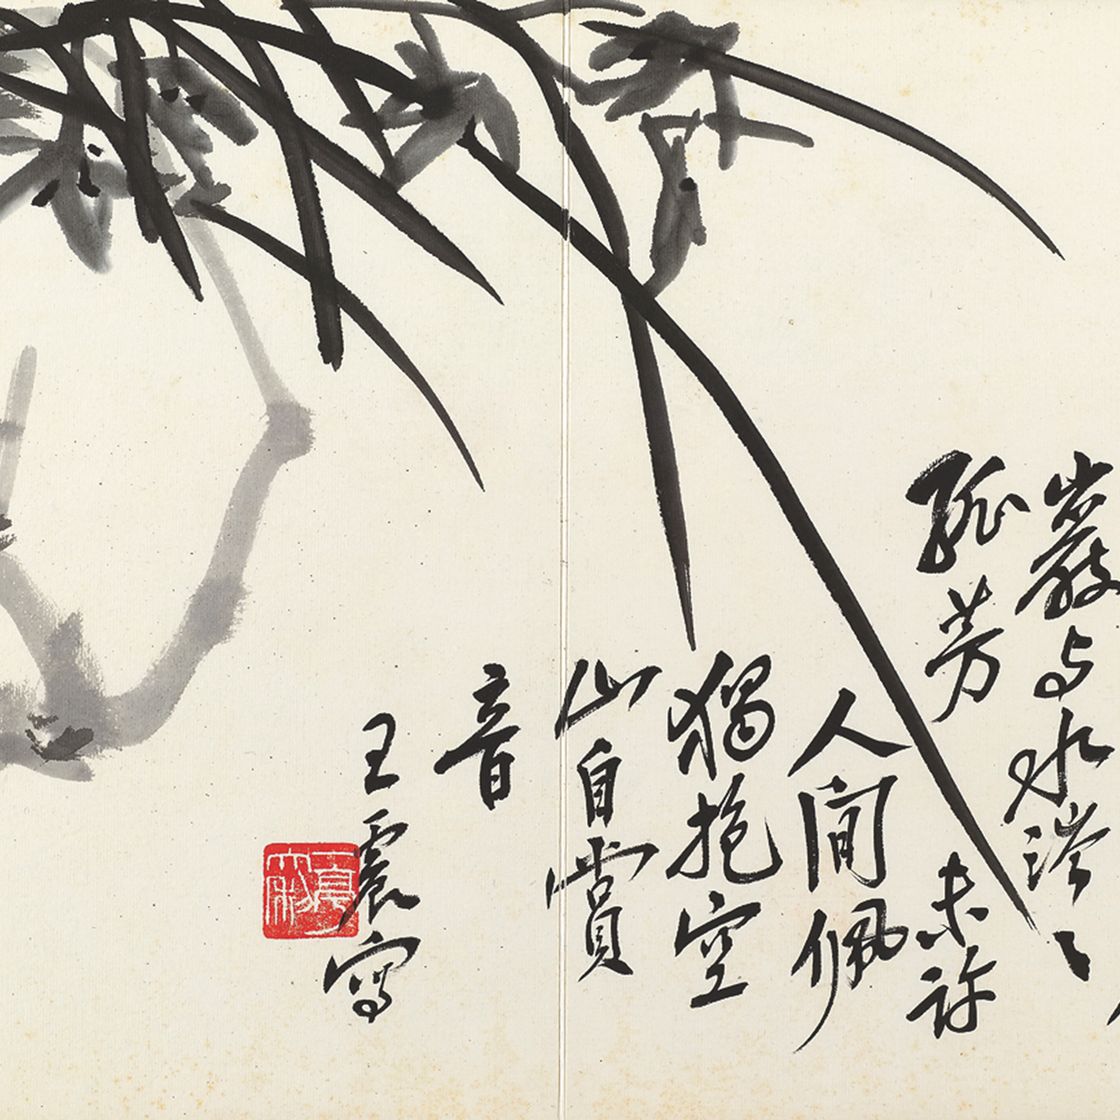 巖与水
孤芳未許
人間佩
獨抱空
山自賞
音
王震寫